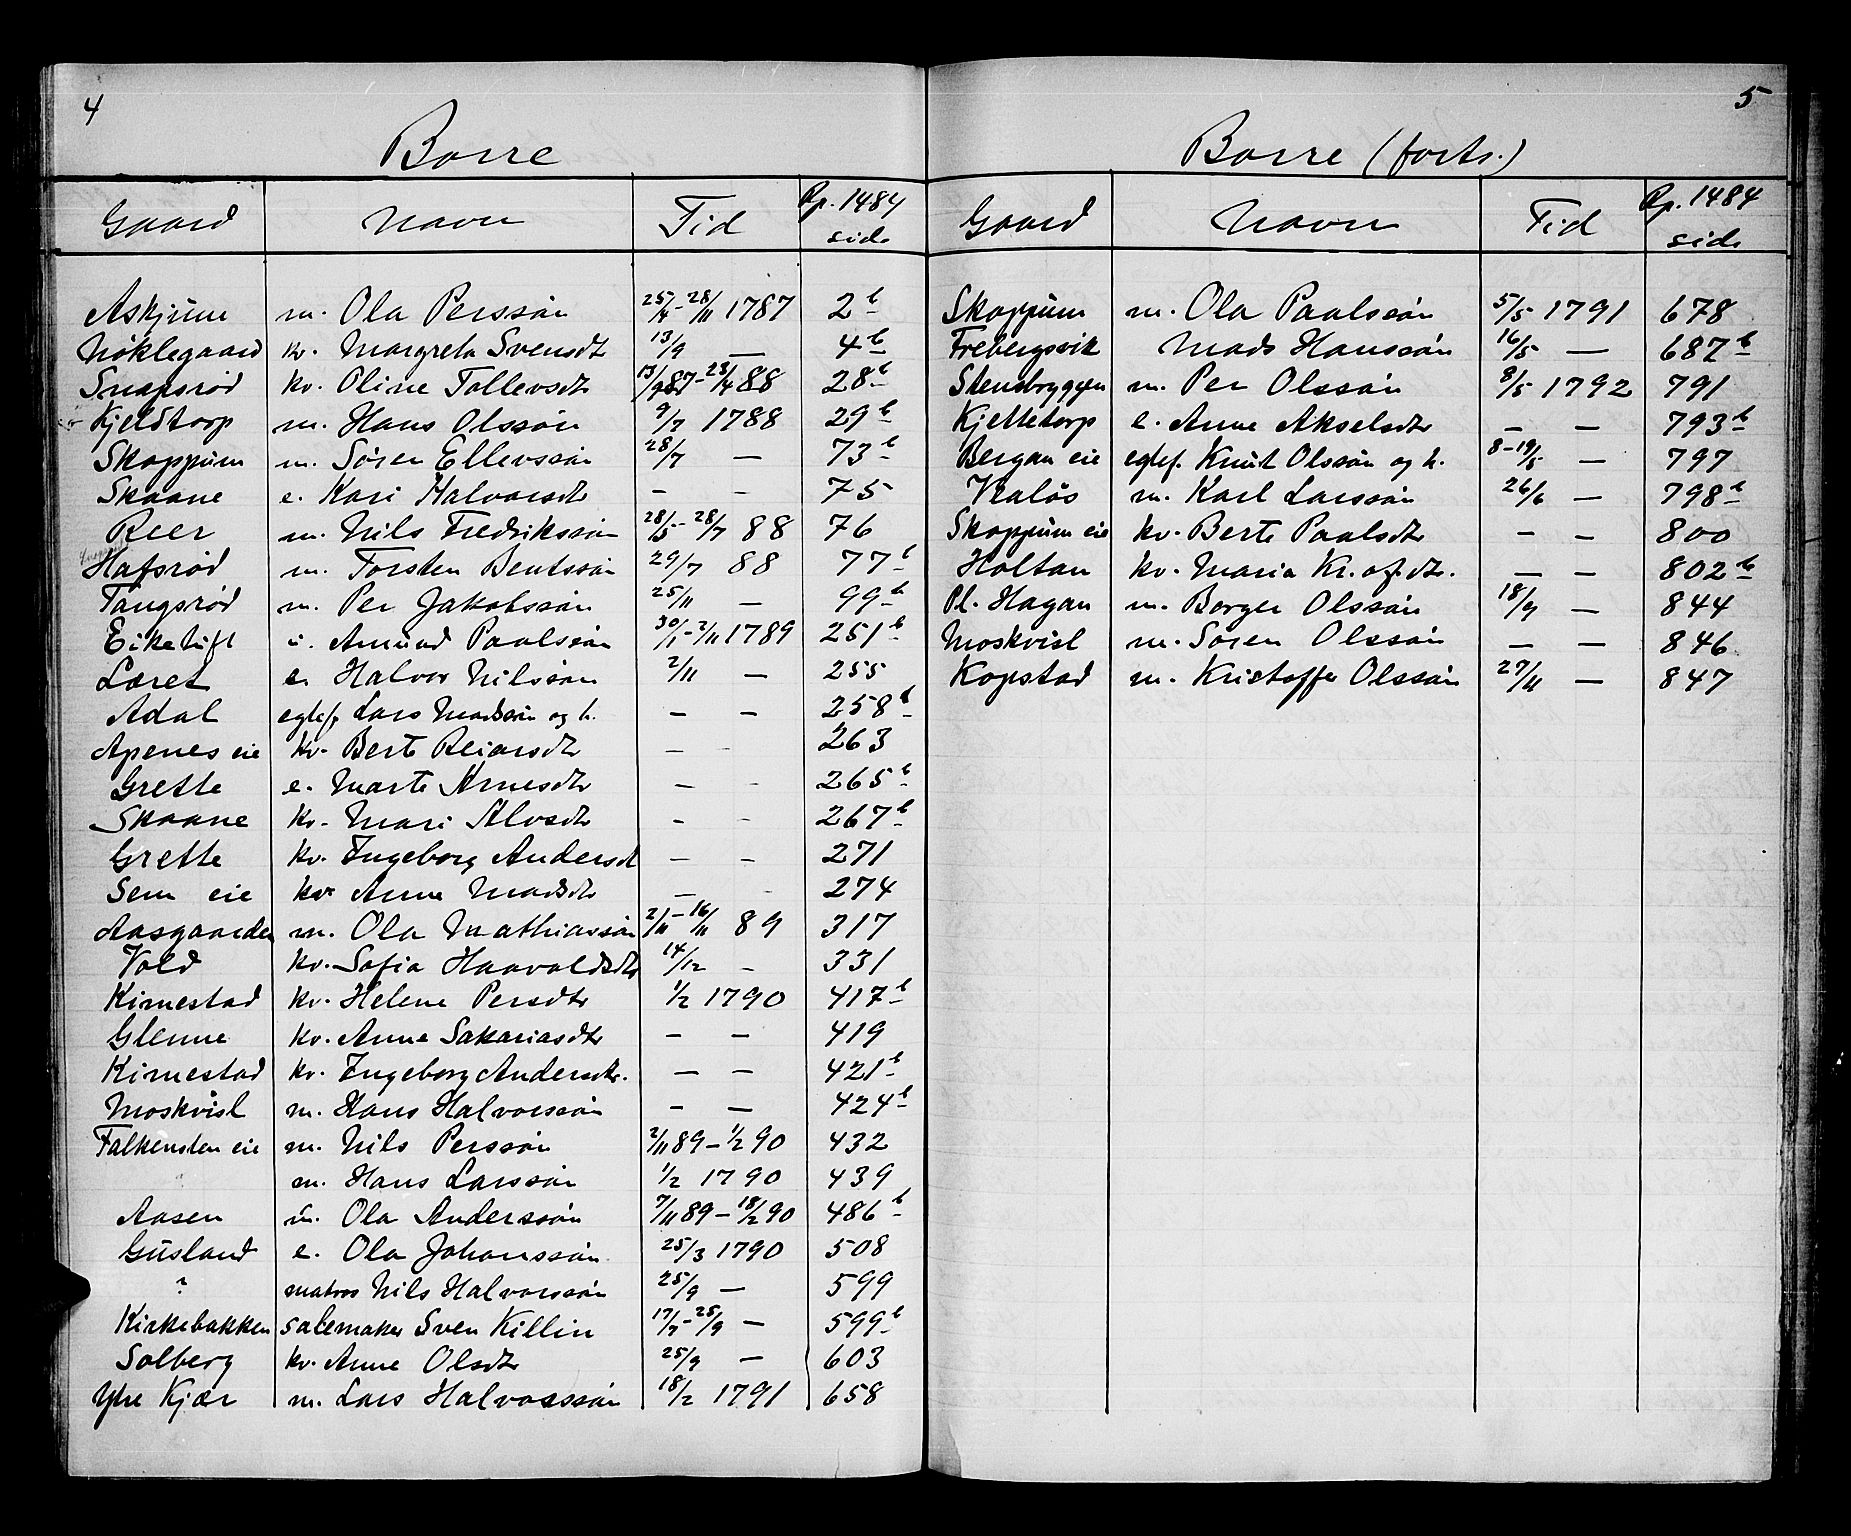 4
Borre
Gaard Navn Tid Rp. 1484 side
Askjum m. Ola Perssøn 25/4-28/11 1787 2b
Nøklegaard kv. Margreta Svensdtr 13/9 — 4b
Snapsrød kv. Oline Tollevsdtr 13/9 87-23/4 88 28b
Kjeldtorp m. Hans Olssøn 9/7 1788 29b
Skoppum m. Søren Ellevssøn 28/7 — 73b
Skaane e. Kari Halvorsdtr - - 75
Reer m. Nils Fredrikssøn 28/5-28/7 88 76
Hafsrød m. Torsten Bentssøn 29/7 88 77b
Tangsrød m. Per Jakobssøn 25/11 — 99b
Eiketuft Amund Paalssøn 30/1-2/11 1789 251b
Læret e. Halvor Nilssøn 2/11 — 255
Adal egtef. Lars Madssøn og h. — — 258b
Apenes eie kv. Berte Reiarsdtr - - 263
Grette e. Marte Arnesdtr — - 265b
Skaane kv. Mari Alvsdtr - - 267b
Grette kv. Ingeborg Andersdt — - 271
Sem eie kv. Anne Madsdtr — - 274
Aasgaarden m. Ola Mathiassøn 2/11-16/11 89 317
Vold kv. Sofia Haavoldsdtr 14/12 - 331
Kirnestad kv. Helene Persdtr 1/2 1790 417b
Glenne kv. Anne Sakariasdtr — — 419
Kirnestad kv. Ingeborg Andersdtr. — — 421b
Moskvisl m. Hans Halvorssøn - — 424b
Falkensten eie m. Nils Perssøn 2/11 89-1/2 90 432
m. Hans Larssøn 1/2 1790 439
Aasen m. Ola Anderssøn 7/11 89-18/2 90 486b
Gusland e. Ola Johanssøn 25/3 1790 508
? matros Nils Halvorssøn 25/9 — 599
Kirkebakken salemaker Sven Killin 17/7-25/9 — 599b
Solberg kv. Anne Olsdtr 25/9 — 603
Ytre Kjær m. Lars Halvorssøn 18/2 1791 658
5
Borre (forts.)
Gaard Navn Tid Rp. 1484 side
Skoppum m. Ola Paalssøn 5/5 1791 678
Frebergsvik Mads Hanssøn 16/5 — 687b
Stensbryggen m. Per Olssøn 8/5 1792 791
Kjettetorp e. Anne Akselsdtr — — 793b
Bergan eie egtef. Knut Olssøn og h. 8-19/5 — 797
Viuløs m. Karl Larssøn 26/6 — 798b
Skoppum eie kv. Berte Paalsdtr — — 800
Holtan kv. Maria Kr.of.dtr. — — 802b
Pl. Hagan m. Borger Olssøn 18/9 — 844
Moskvisl m. Søren Olssøn — — 846
Kopstad m. Kristoffer Olssøn 27/11 — 847